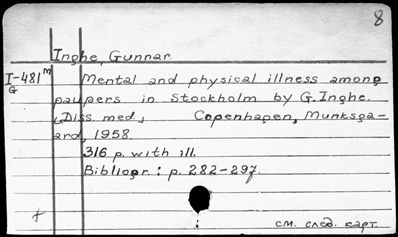 8
Inghe, Gunnar.
I-481m
G
Mental and physical illness among
paupers in Stockholm by G. Inghe.
(Diss. med.) Copenhagen, Munksga-
ard, 1958.
316 p. with ill.
Bibliogr: p. 282-297.
+
см. след. карт.